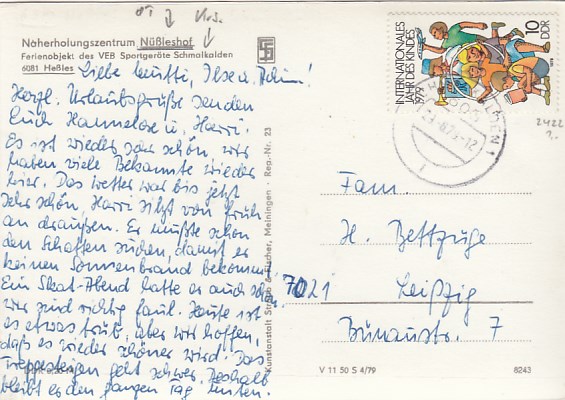 Naherholungszentrum Nüßleshof
Ferienobjekt des VEB Sportgeräte Schmalkalden
6081 Heßles
Liebe Mutti, Ilse u. Achim!
Herzl. Urlaubsgrüße senden
Euch Hannelore u. Harri.
Es ist wieder sehr schön, wir
haben viele Bekannte wieder
hier. Das Wetter war bis jetzt
sehr schön, Harri sitzt von früh
an draußen. Er mußte schon
den Schatten suchen, damit er
keinen Sonnenbrand bekommt.
Ein Skat-Abend hatte er auch schon,
wir sind richtig faul. Heute ist
es etwas trüb, aber wir hoffen,
daß es wieder schöner wird. Das
Treppesteigen geht schwer. Deshalb
bleibt er den ganzen Tag unten.
Kunstanstalt Straub & Fischer, Meiningen · Reg.-Nr. 23
INTERNATIONALES
JAHR DES KINDES
1979
10
DDR
2422
Fam.
H. Bettzüge
7021 Leipzig
Bünaustr. 7
V 11 50 S 4/79
8243